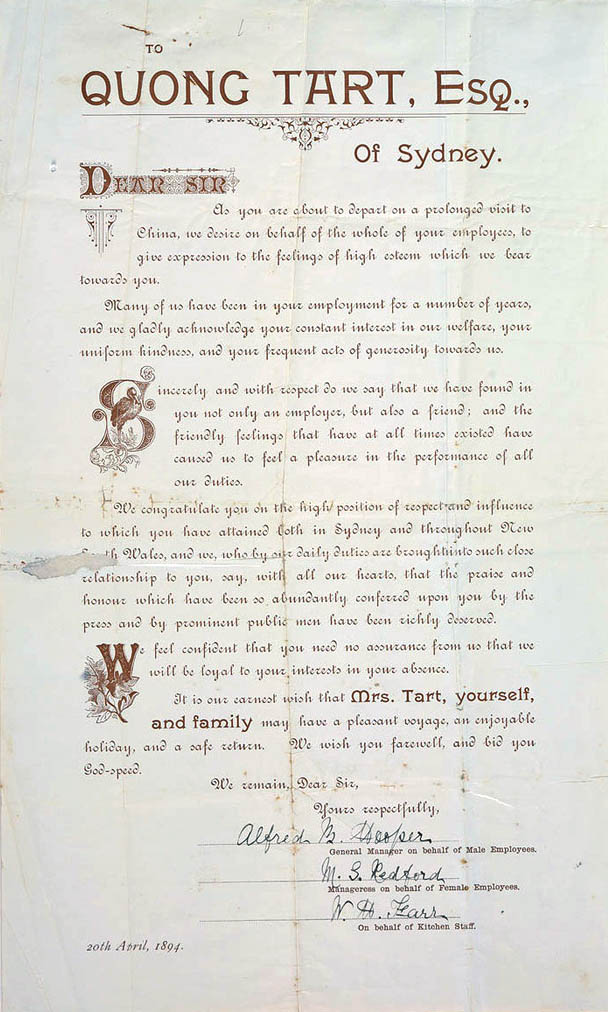 TO
QUONG TART, ESQ.,
Of Sydney.
DEAR SIR
As you are about to depart on a prolonged visit to
China, we desire on behalf of the whole of your employees, to
give expression to the feelings of high esteem which we bear
towards you.
Many of us have been in your employment for a number of years,
and we gladly acknowledge your constant interest in our welfare, your
uniform kindness, and your frequent acts of generosity towards us.
Sincerely and with respect do we say that we have found in
you not only an employer, but also a friend; and the
friendly feelings that have at all times existed have
caused us to feel a pleasure in the performance of all
our duties.
We congratulate you on the high position of respect and influence
to which you have attained both in Sydney and throughout New
South Wales, and we, who by our daily duties are brought into such close
relationship to you, say, with all our hearts, that the praise and
honour which have been so abundantly conferred upon you by the
press and by prominent public men have been richly deserved.
We feel confident that you need no assurance from us that we
will be loyal to your interests in your absence.
It is our earnest wish that Mrs. Tart, yourself,
and family may have a pleasant voyage, an enjoyable
holiday, and a safe return. We wish you farewell, and bid you
God-speed.
We remain, Dear Sir,
Yours respectfully,
Alfred B. Hooper
General Manager on behalf of Male Employees.
M. S. Redford
Manageress on behalf of Female Employees.
W. H.
On behalf of Kitchen Staff.
20th April, 1894.